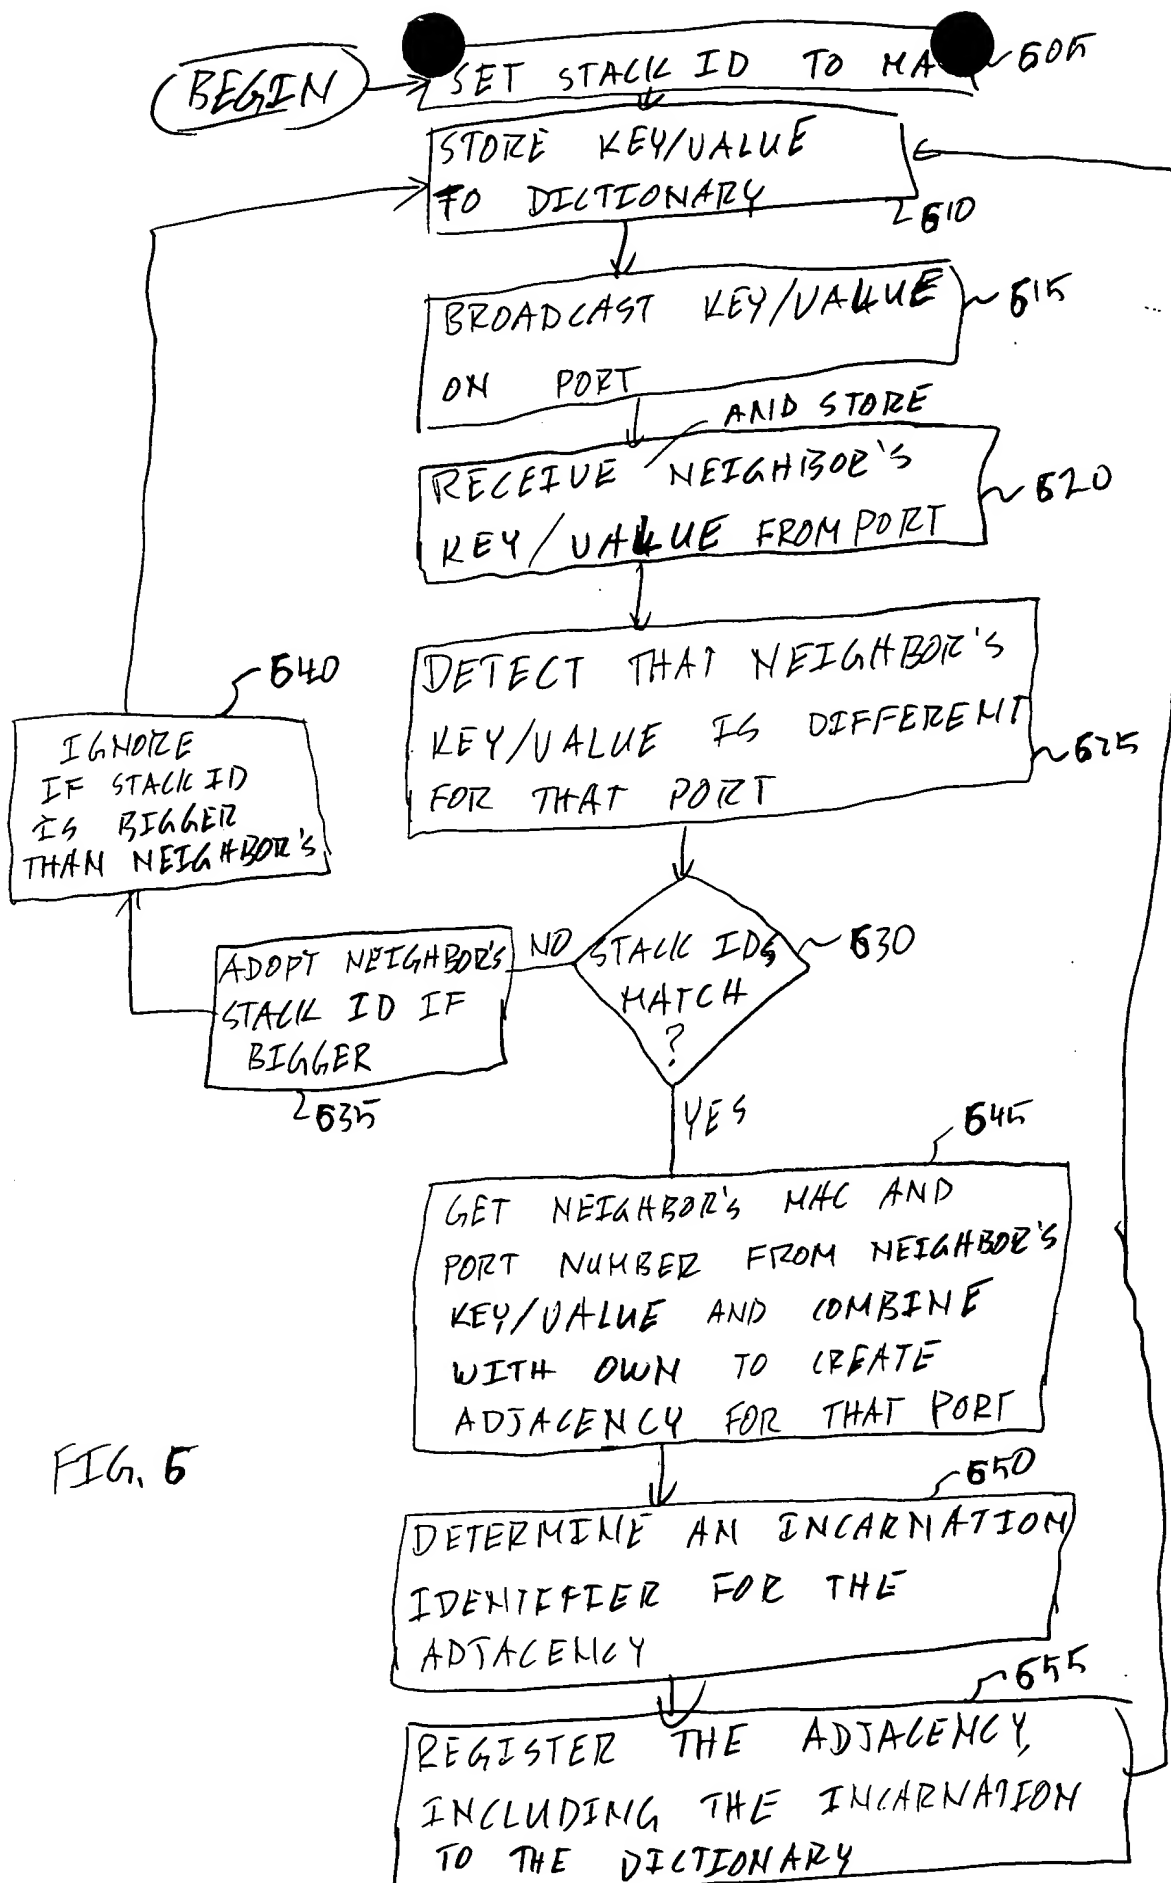 BEGIN
SET STACK ID TO MA
605
STORE KEY/VALUE
TO DICTIONARY
610
BROADCAST KEY/VALUE
ON PORT
615
AND STORE
RECEIVE NEIGHBOR'S
KEY/VALUE FROM PORT
620
DETECT THAT NEIGHBOR'S
KEY/VALUE IS DIFFERENT
FOR THAT PORT
625
640
IGNORE
IF STACK ID
IS BIGGER
THAN NEIGHBOR'S
STACK IDS
MATCH
?
630
NO
ADOPT NEIGHBOR'S
STACK ID IF
BIGGER
635
YES
645
GET NEIGHBOR'S MAC AND
PORT NUMBER FROM NEIGHBOR'S
KEY/VALUE AND COMBINE
WITH OWN TO CREATE
ADJACENCY FOR THAT PORT
FIG. 6
650
DETERMINE AN INCARNATION
IDENTIFIER FOR THE
ADJACENCY
655
REGISTER THE ADJACENCY,
INCLUDING THE INCARNATION
TO THE DICTIONARY